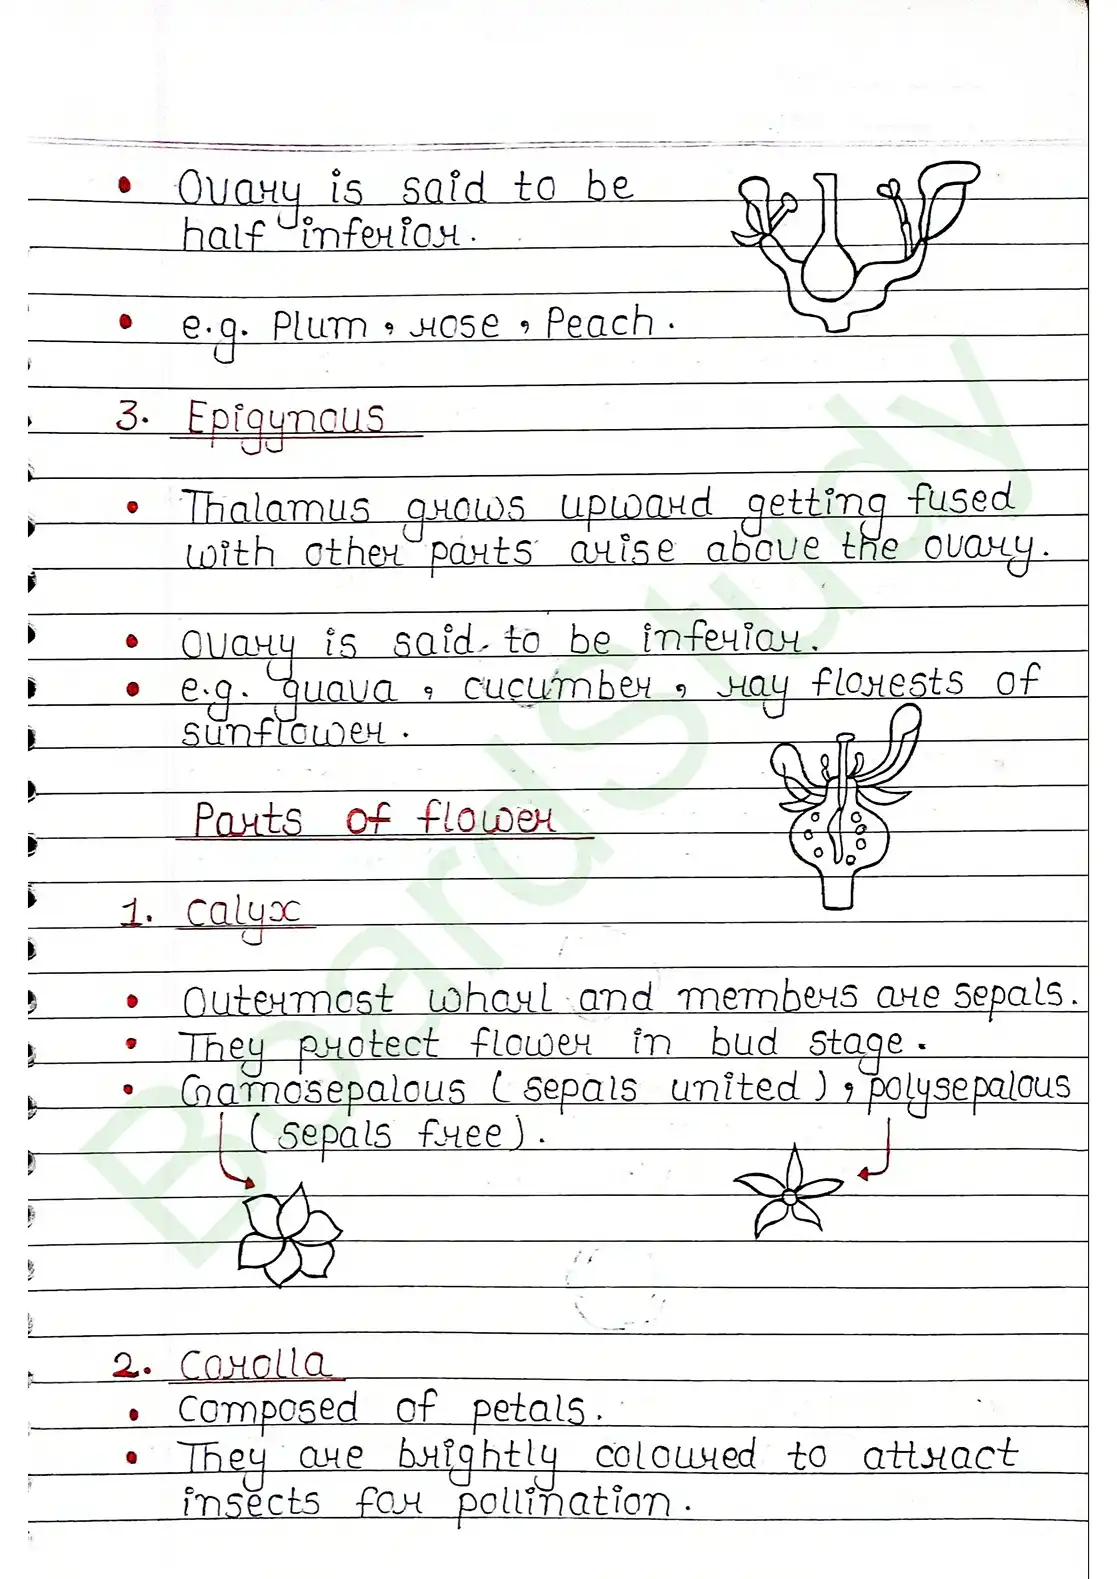 • Ovary is said to be
half inferior.
• e.g. Plum, rose, Peach.
3. Epigynous
• Thalamus grows upward getting fused
with other parts arise above the ovary.
• Ovary is said to be inferior.
• e.g. guava, cucumber, ray florests of
sunflower.
Parts of flower
1. Calyx
• Outermost whorl and members are sepals.
• They protect flower in bud stage.
• Gamosepalous (sepals united), polysepalous
(sepals free).
2. Corolla
• Composed of petals.
• They are brightly coloured to attract
insects for pollination.
BoardStudy